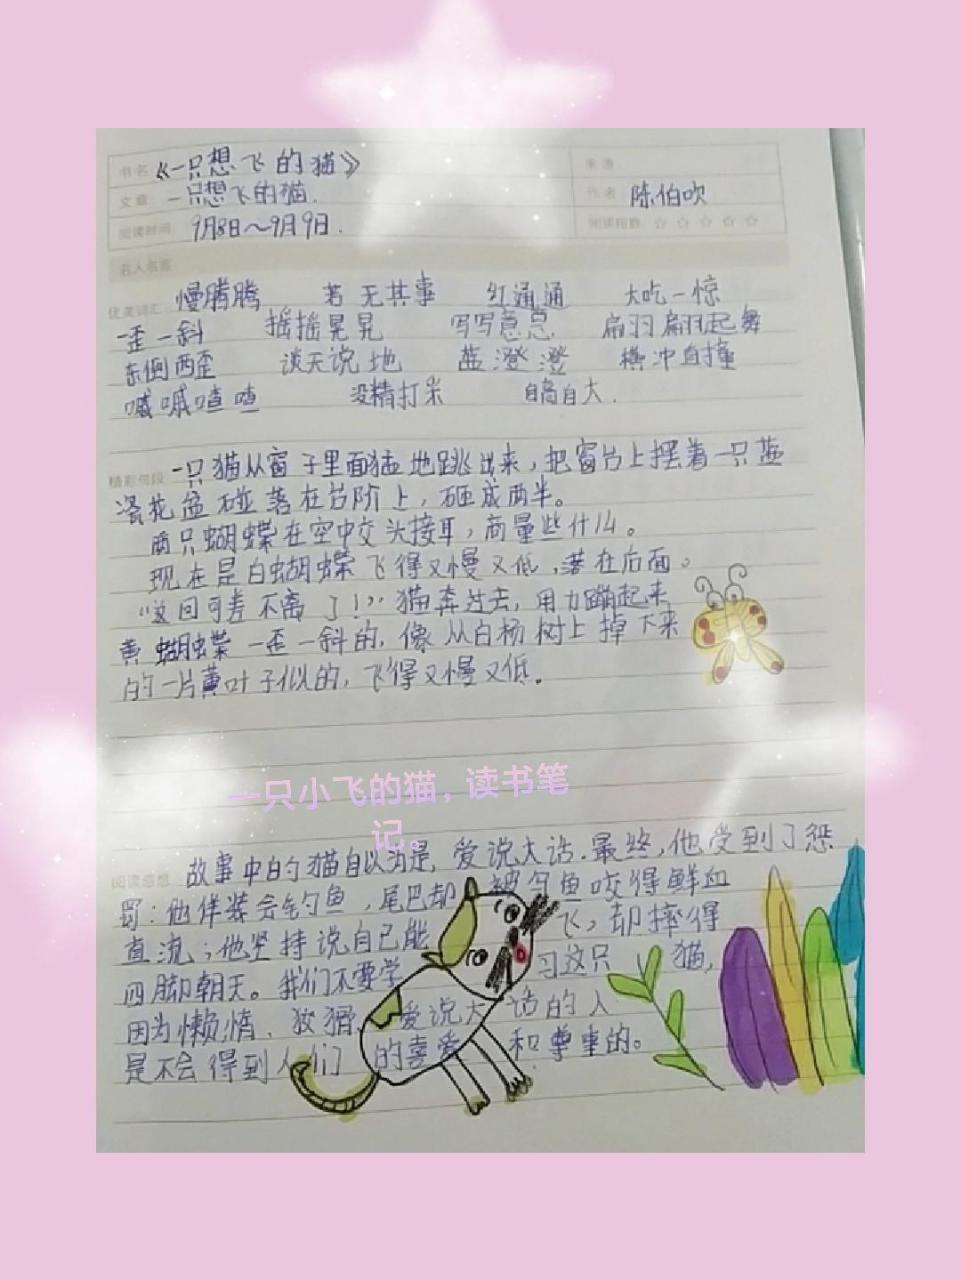 书名 《一只想飞的猫》 来源
文章 一只想飞的猫. 作者 陈伯吹
阅读时间 9月8日～9月9日. 阅读指数 ☆ ☆ ☆ ☆ ☆
名人名言
优美词汇 慢腾腾 若无其事 红通通 大吃一惊
一歪一斜 摇摇晃晃 翩翩起舞
东倒西歪 谈天说地 蓝澄澄 横冲直撞
嘁嘁喳喳 没精打采 自高自大.
精彩句段 一只猫从窗子里面猛地跳出来,把窗台上摆着一只蓝
瓷花盆碰落在台阶上,砸成两半。
两只蝴蝶在空中交头接耳,商量些什么。
现在是白蝴蝶飞得又慢又低,落在后面。
“这回可差不离了!”猫奔过去,用力蹦起来
黄蝴蝶一歪一斜的,像从白杨树上掉下来
的一片黄叶子似的,飞得又慢又低。
一只小飞的猫，读书笔
记。
阅读感想 故事中的猫自以为是,爱说大话.最终,他受到了惩
罚:他佯装会钓鱼,尾巴却被鱼咬得鲜血
直流;他坚持说自己能飞,却摔得
四脚朝天。我们不要学习这只猫,
因为懒惰、狡猾爱说大话的人
是不会得到人们的喜爱和尊重的。